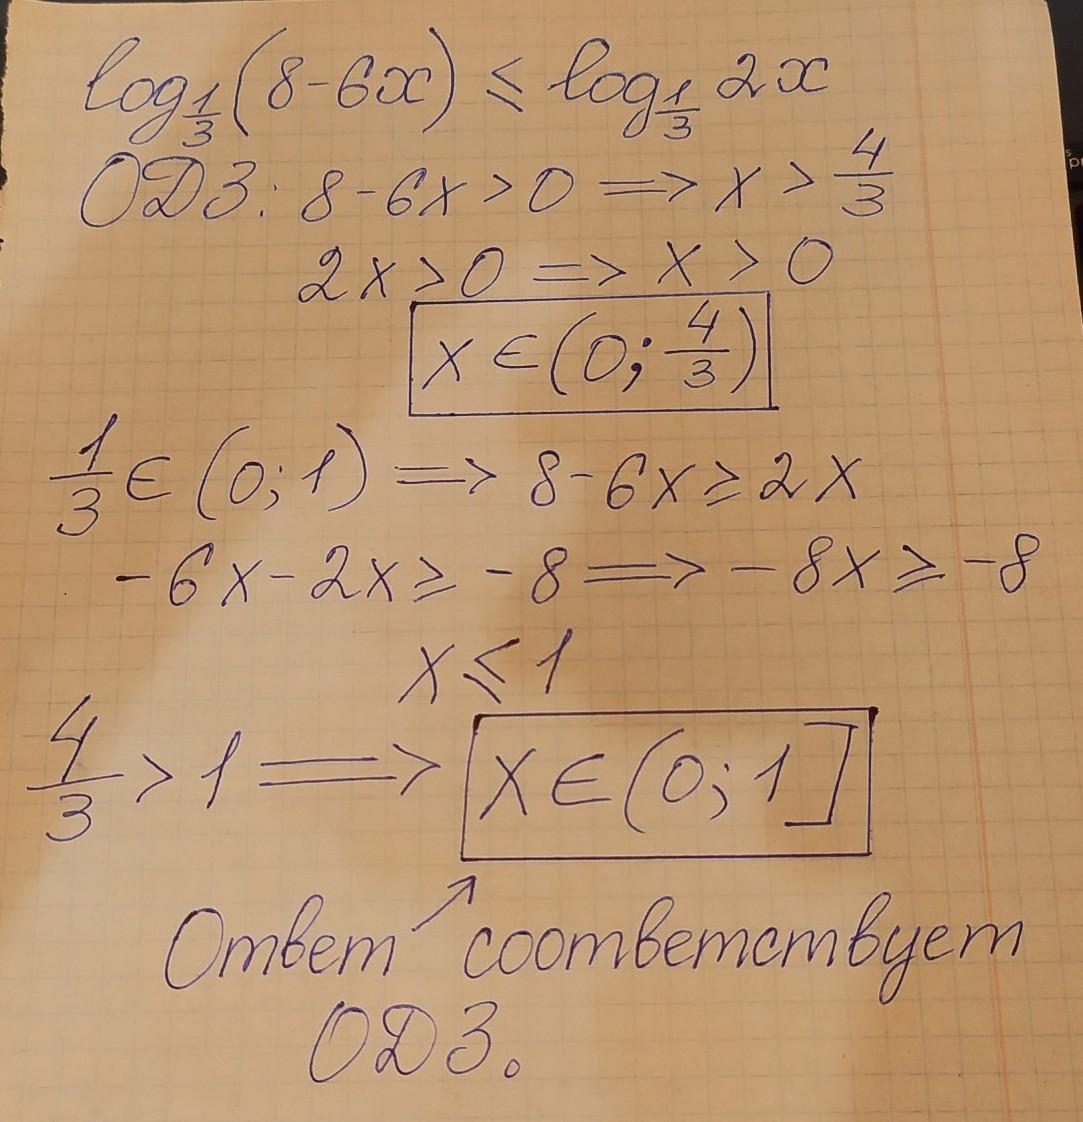 log_{1/3}(8-6x) ≤ log_{1/3} 2x
ОДЗ: 8-6x>0 => x > 4/3
2x>0 => x > 0
x ∈ (0; 4/3)
1/3 ∈ (0; 1) => 8-6x ≥ 2x
-6x-2x ≥ -8 => -8x ≥ -8
x ≤ 1
4/3 > 1 => x ∈ (0; 1]
Ответ соответствует
ОДЗ.